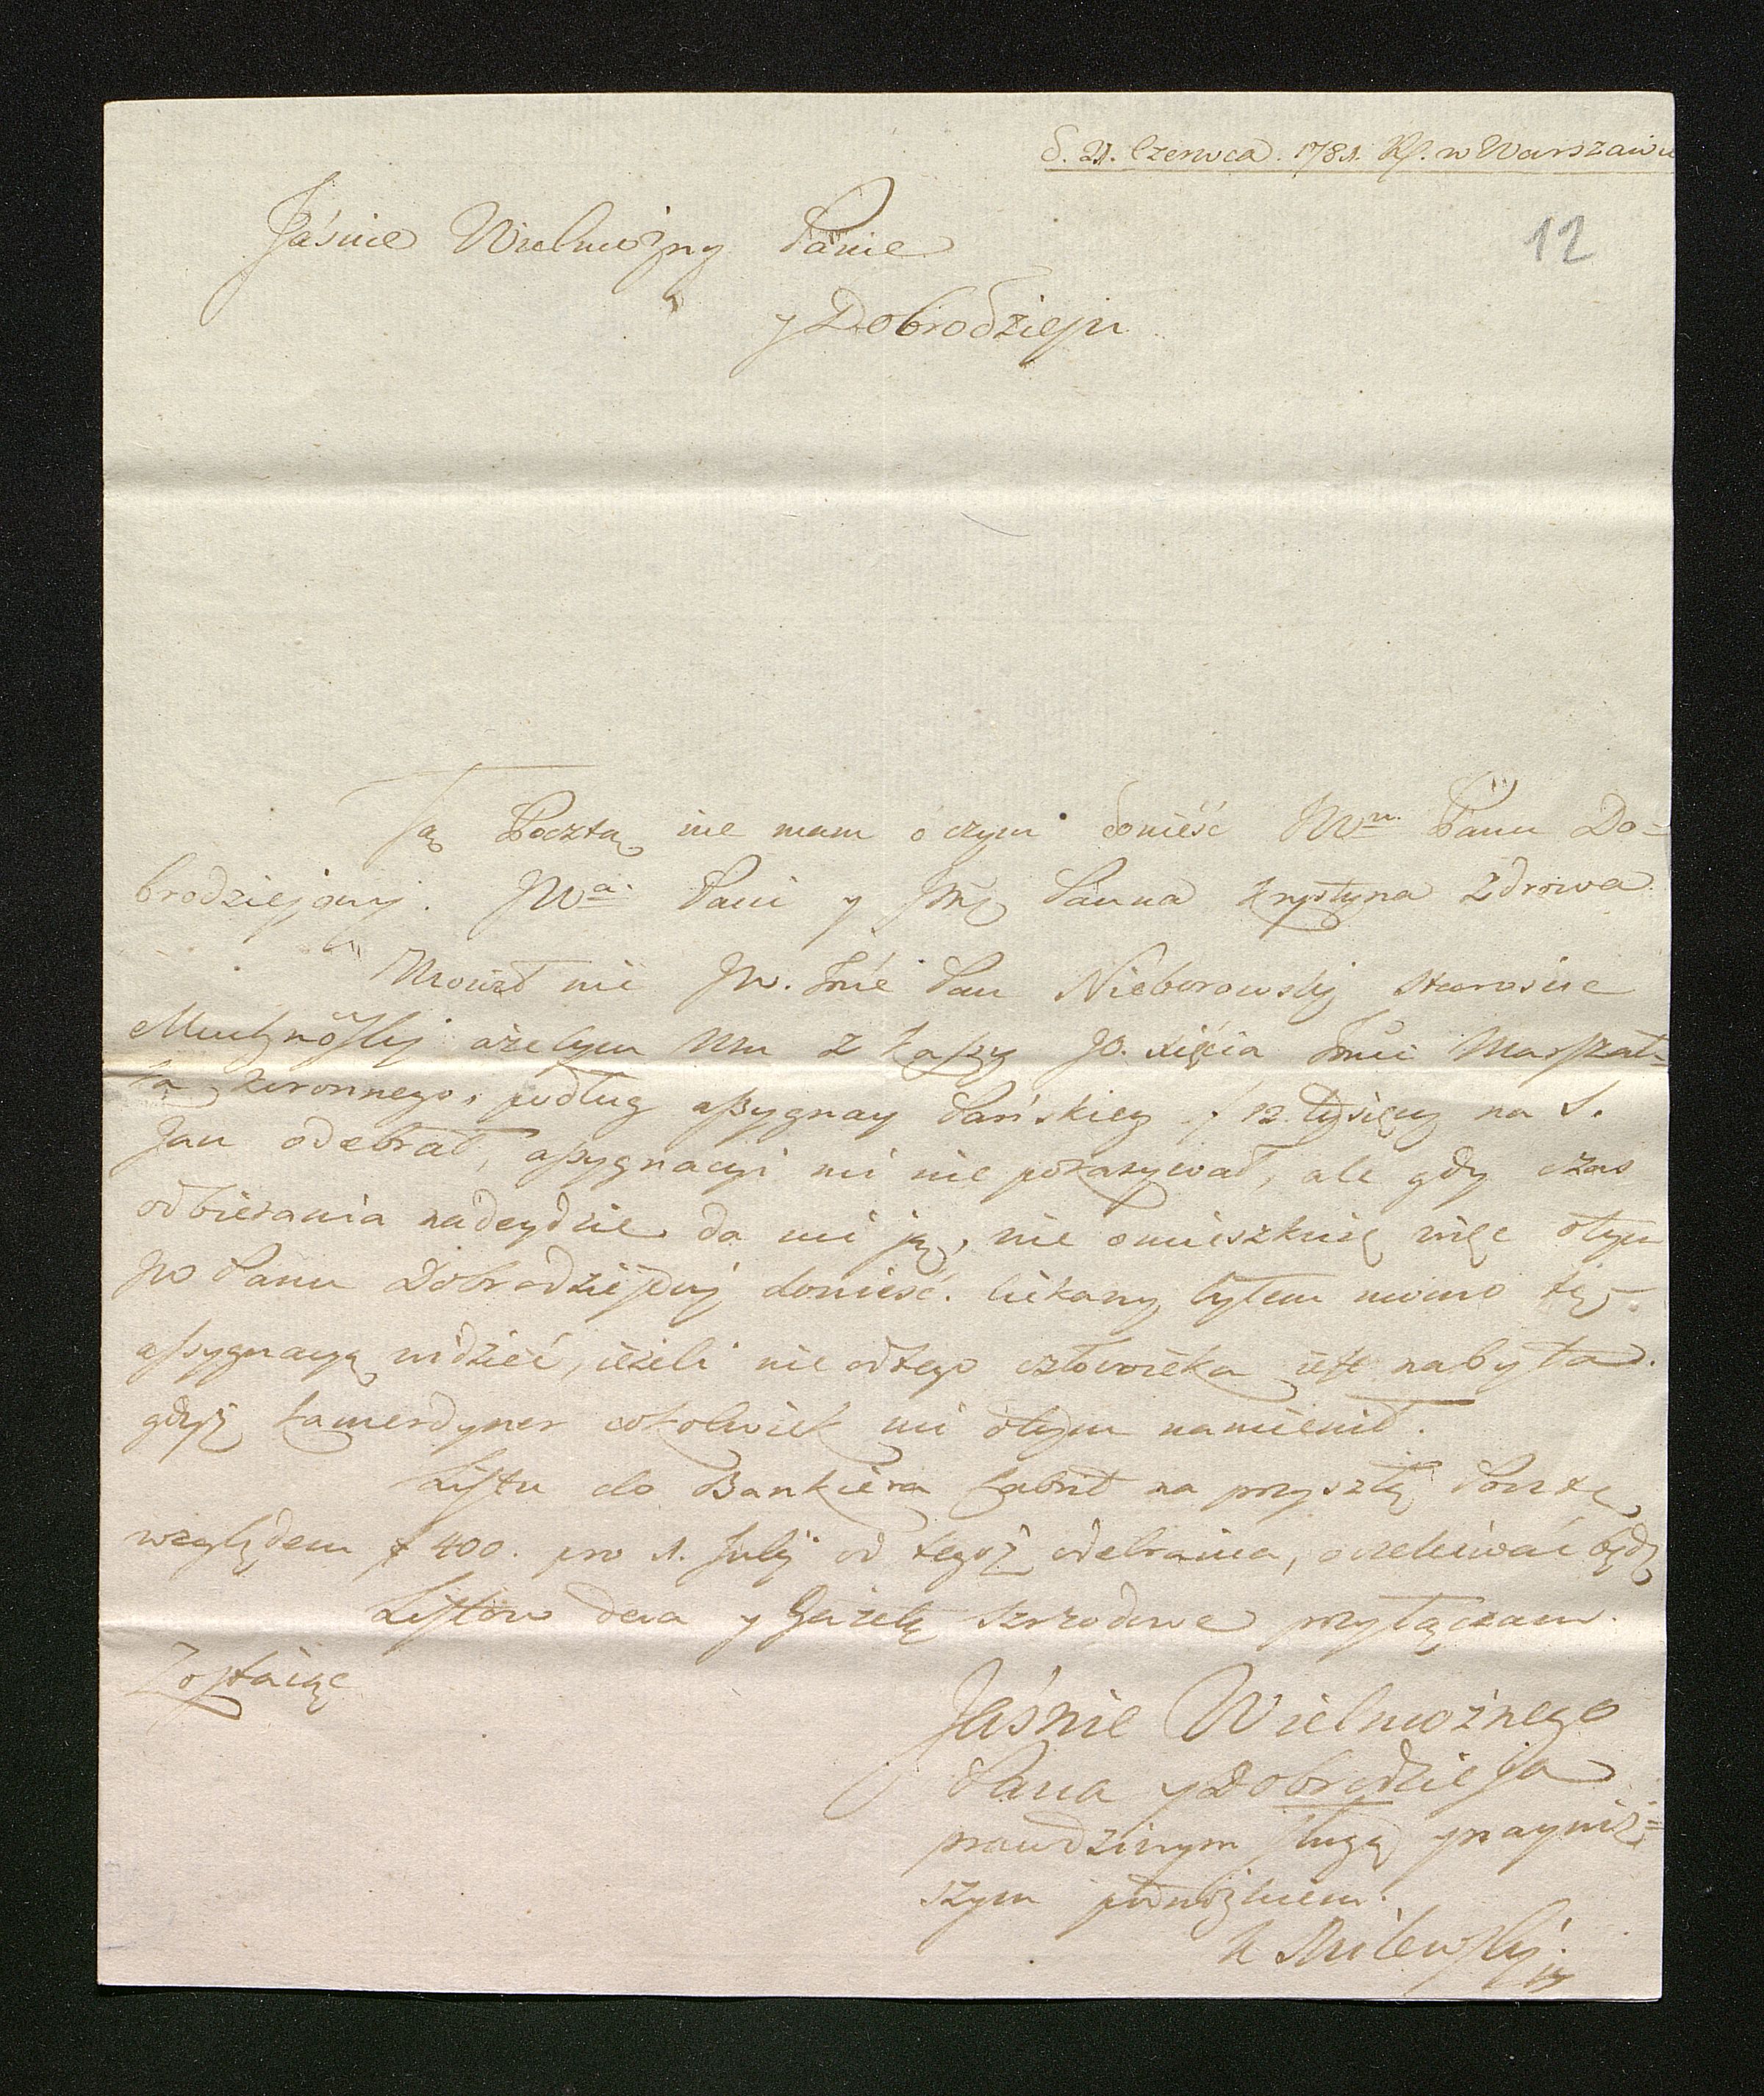 d. 21. Czerwca. 1781. Rs. w Warszawie
12
Jaśnie Wielmożny Panie
y Dobrodzieju
Tą Pocztą nie mam o czym donieść JWu. Panu Do-
brodziejowj. JWa. Pani y Jmć Panna Krystyna Zdrowa
Mowił mi JW. Jmć Pan Nieborowskj Starosta
ażebym Mu z kassy JO. xięcia Jmći Marszał-
ka koronnego, podług assygnacy Pańskiey f 12. tysięcy na S.
Jan odebrał, assygnacyi mi nie pokazywał, ale gdy czas
odbierania nadeydzie da mi ją, nie omieszkuię więc otym
JW Panu Dobrodziejowj donieść. Ciekawy byłem mocno tę
assygnacyą widzieć, ieżeli nie od tego człowieka iest nabyta.
gdyż kamerdyner cokolwiek mi otym namienił.
Listu do Bankiera Cabrit na przyszłą Pocztę
względem # 400. pro 1. Julij od tegoż odebrania, oczekiwać będę
Listow dwa y Gazetę szrodowe przyłączam.
Zostaiąc
Jaśnie Wielmożnego
Pana y Dobrodzieja
prawdziwym sługą y nayniż-
szym podnożkiem.
Milewskj